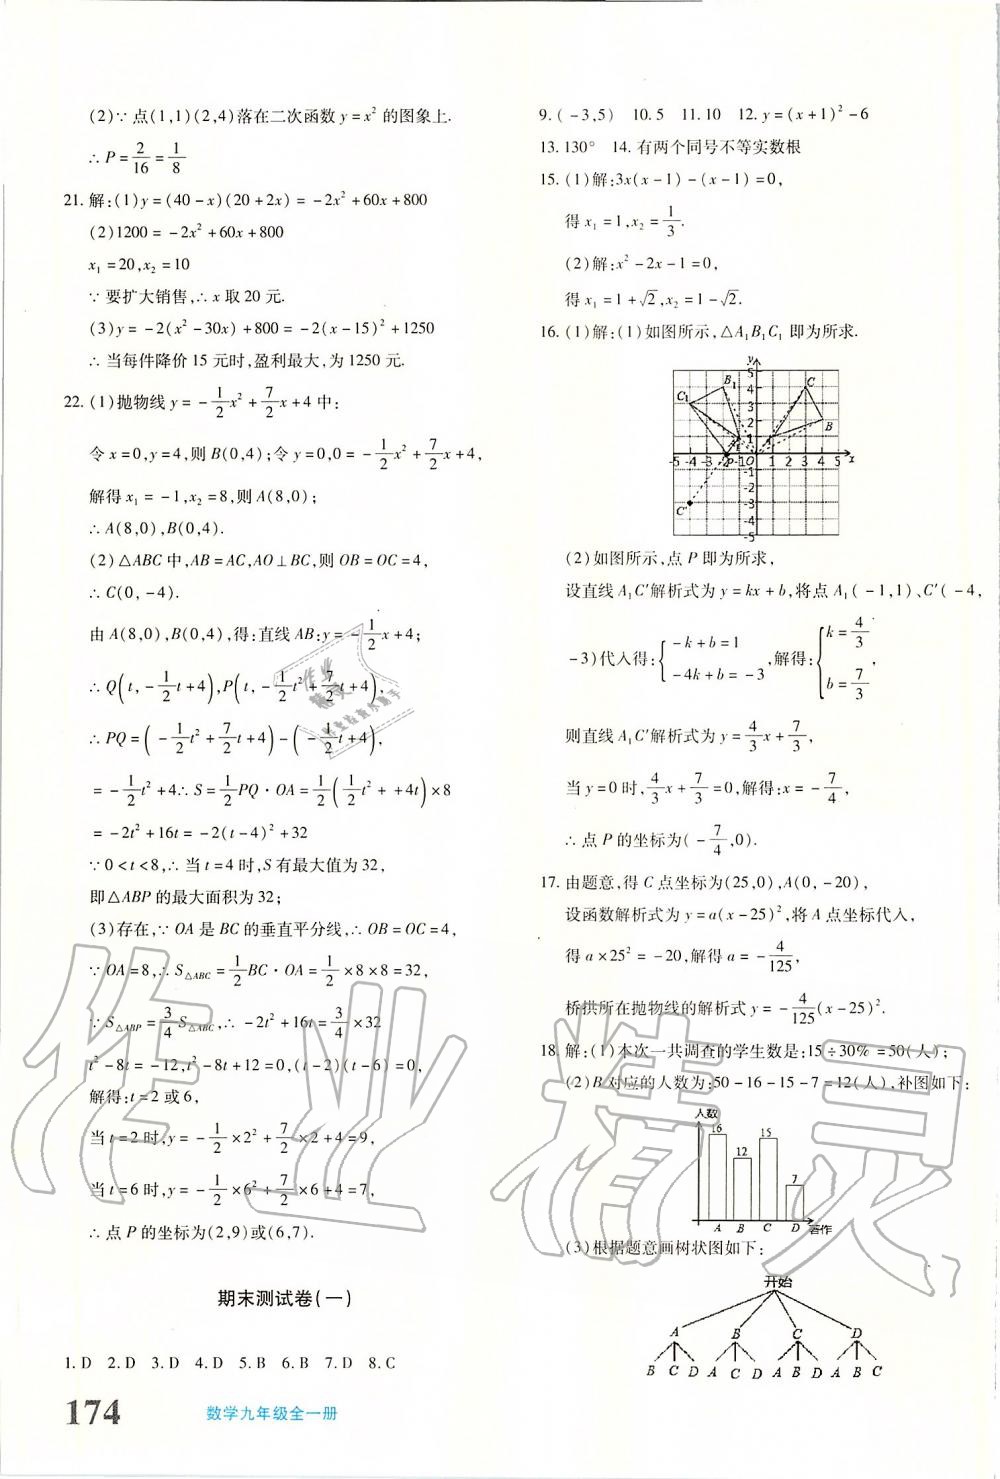 (2)∵点(1,1)(2,4)落在二次函数 y=x² 的图象上.
∴P=2/16=1/8
21. 解:(1)y=(40-x)(20+2x)=-2x²+60x+800
(2)1200=-2x²+60x+800
x₁=20,x₂=10
∵要扩大销售,∴x 取 20 元.
(3)y=-2(x²-30x)+800=-2(x-15)²+1250
∴当每件降价 15 元时,盈利最大,为 1250 元.
22. (1)抛物线 y=-1/2x²+7/2x+4 中:
令 x=0,y=4,则 B(0,4);令 y=0,0=-1/2x²+7/2x+4,
解得 x₁=-1,x₂=8,则 A(8,0);
∴A(8,0),B(0,4).
(2)△ABC 中,AB=AC,AO⊥BC,则 OB=OC=4,
∴C(0,-4).
由 A(8,0),B(0,4),得:直线 AB:y=-1/2x+4;
∴Q(t,-1/2t+4),P(t,-1/2t²+7/2t+4),
∴PQ=(-1/2t²+7/2t+4)-(-1/2t+4),
=-1/2t²+4∴S=1/2PQ·OA=1/2(1/2t²++4t)×8
=-2t²+16t=-2(t-4)²+32
∵0<t<8,∴当 t=4 时,S 有最大值为 32,
即△ABP 的最大面积为 32;
(3)存在,∵OA 是 BC 的垂直平分线,∴OB=OC=4,
∵OA=8,∴S△ABC=1/2BC·OA=1/2×8×8=32,
∵S△ABP=3/4S△ABC,∴-2t²+16t=3/4×32
t²-8t=-12,t²-8t+12=0,(t-2)(t-6)=0,
解得:t=2 或 6,
当 t=2 时,y=-1/2×2²+7/2×2+4=9,
当 t=6 时,y=-1/2×6²+7/2×6+4=7,
∴点 P 的坐标为(2,9)或(6,7).
期末测试卷(一)
1. D 2. D 3. D 4. D 5. B 6. B 7. D 8. C
174 数学九年级全一册
9. (-3,5) 10. 5 11. 10 12. y=(x+1)²-6
13. 130° 14. 有两个同号不等实数根
15. (1)解:3x(x-1)-(x-1)=0,
得 x₁=1,x₂=1/3.
(2)解:x²-2x-1=0,
得 x₁=1+√2,x₂=1-√2.
16. (1)解:(1)如图所示,△A₁B₁C₁ 即为所求.
y
5
4
3
2
1
B₁
C₁
C
B
-5-4-3-2-1O 1 2 3 4 5 x
P
-1
-2
-3
-4
-5
C'
(2)如图所示,点 P 即为所求,
设直线 A₁C'解析式为 y=kx+b,将点 A₁(-1,1)、C'(-4,
-3)代入得:{-k+b=1 -4k+b=-3,解得:{k=4/3 b=7/3,
则直线 A₁C'解析式为 y=4/3x+7/3,
当 y=0 时,4/3x+7/3=0,解得:x=-7/4,
∴点 P 的坐标为(-7/4,0).
17. 由题意,得 C 点坐标为(25,0),A(0,-20),
设函数解析式为 y=a(x-25)²,将 A 点坐标代入,
得 a×25²=-20,解得 a=-4/125,
桥拱所在抛物线的解析式 y=-4/125(x-25)².
18. 解:(1)本次一共调查的学生数是:15÷30%=50(人);
(2)B 对应的人数为:50-16-15-7=12(人),补图如下:
人数
16 12 15 7
A B C D 著作
(3)根据题意画树状图如下:
开始
A B C D
B C D A C D A B D A B C
作业精灵
作业
精灵